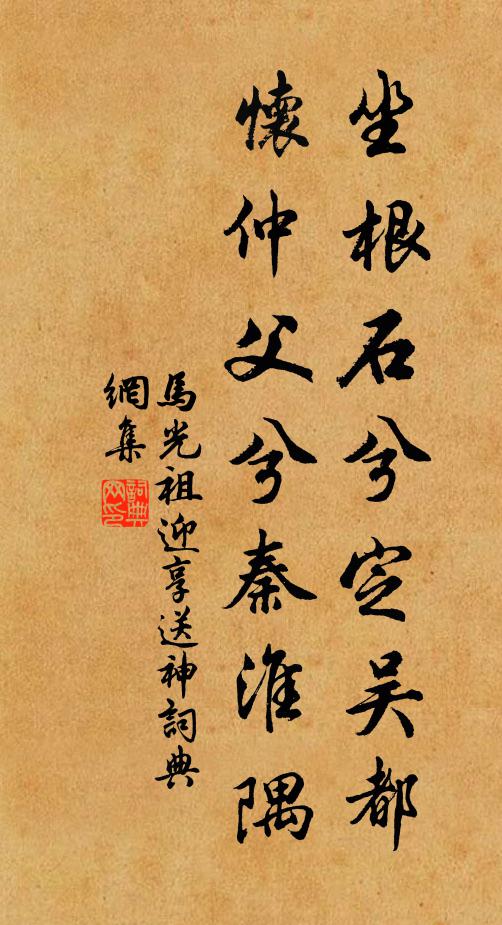 坐根石兮定吴都
懷仲父兮秦淮隅
馬光祖迎享送神詞典
網集
詞典
网印